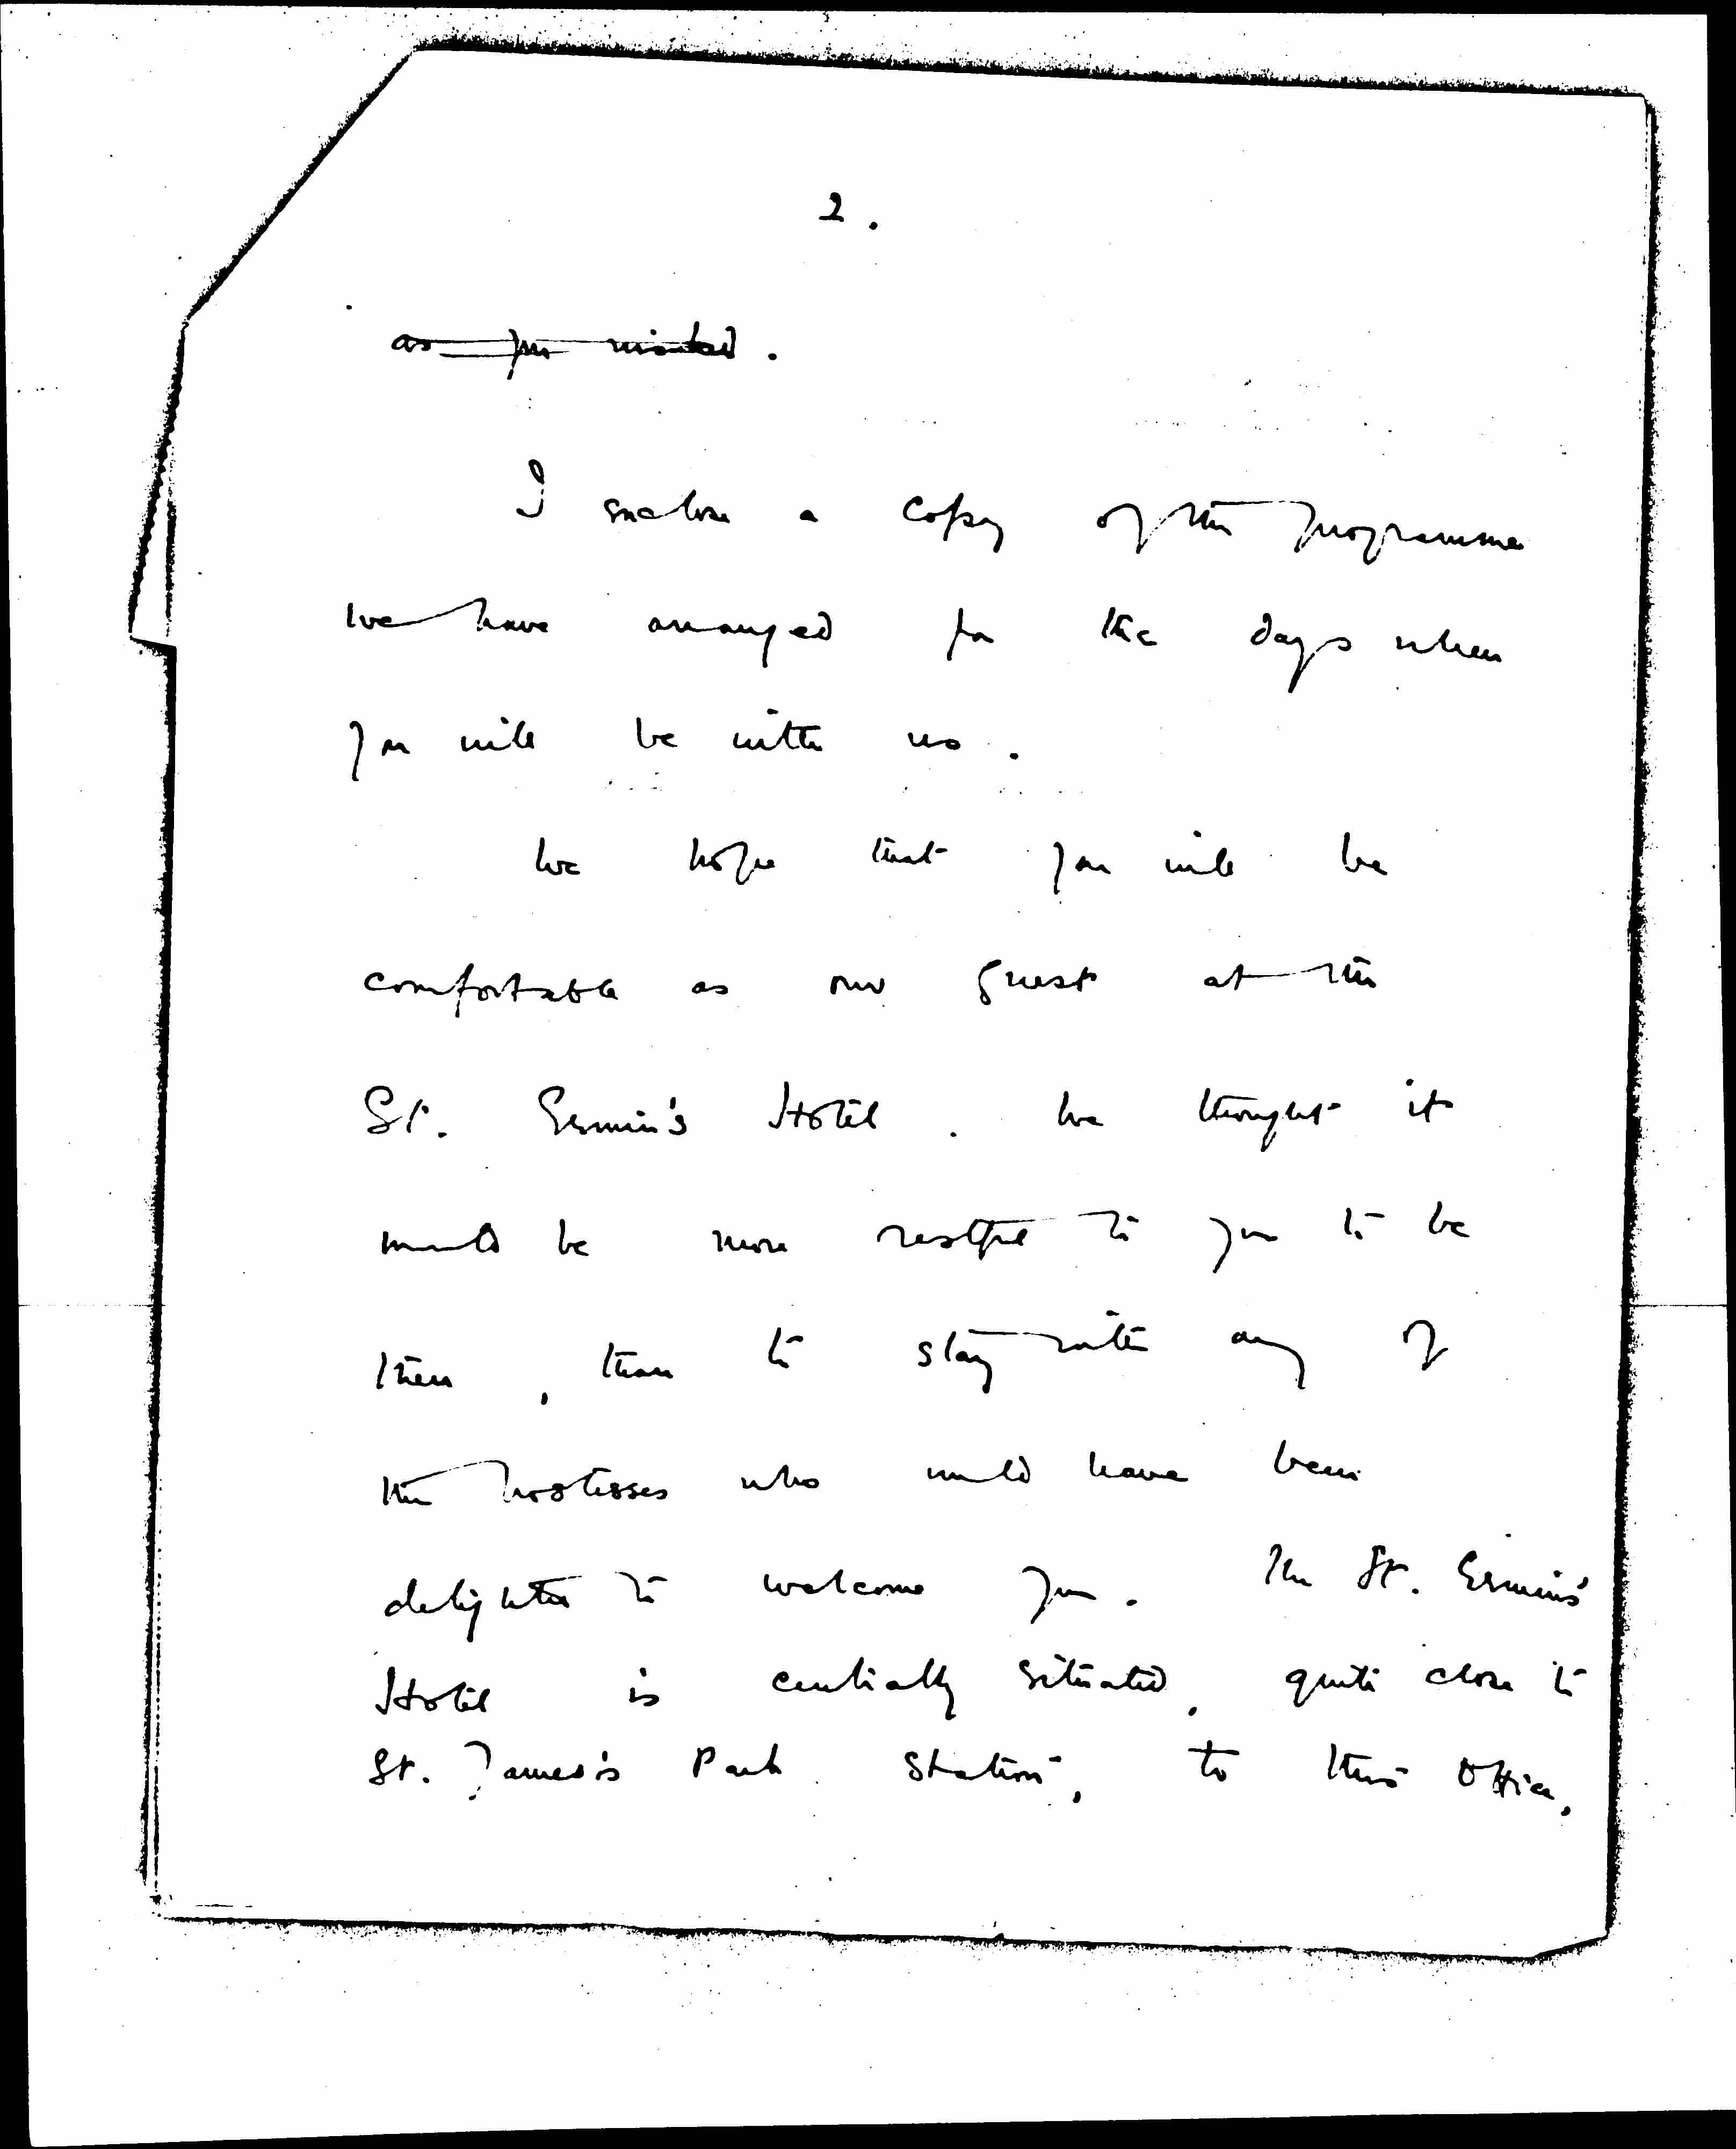 2.
as you wished.
I enclose a copy of the programme
we have arranged for the days when
you will be with us.
We hope that you will be
comfortable as our guest at the
St. Ermin's Hotel. We thought it
would be more restful to you to be
there, than to stay with any of
the hostesses who would have been
delighted to welcome you. The St. Ermin's
Hotel is centrally situated, quite close to
St. James's Park Station, to this Office,